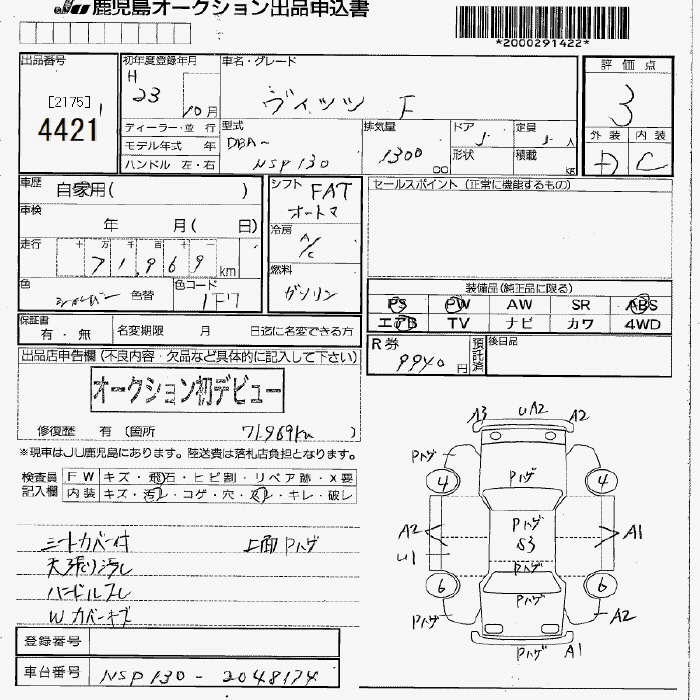 JU 鹿児島オークション出品申込書
*2000291422*
出品番号
[2175]
4421
初年度登録年月
H
23
10月
ディーラー・並 行
モデル年式 年
ハンドル 左・右
車名・グレード
ヴィッツ F
型式
DBA-
NSP130
排気量
1300
cc
ドア
5
形状
定員
5 人
積載
KG
評 価 点
3
外 装
D
内 装
C
車歴
自家用( )
車検
年 月( 日)
走行
十 万 千 百 十
71,969 km
色
シルバー
色替
色コード
1F7
シフト
FAT
オートマ
冷房
A/C
燃料
ガソリン
セールスポイント (正常に機能するもの)
装備品(純正品に限る)
PS PW AW SR ABS
エアB TV ナビ カワ 4WD
保証書
有 ・ 無
名変期限 月 日迄に名変できる方
R 券
9940 円
預託済
後日品
出品店申告欄(不良内容・欠品など具体的に記入して下さい)
オークション初デビュー
修復歴 有 〔箇所 71969km )
※現車はJU鹿児島にあります。陸送費は落札店負担となります。
検査員
記入欄
FW キズ・飛石・ヒビ割・リペア跡・X要
内装 キズ・汚レ・コゲ・穴・スレ・キレ・破レ
シートカバー付 上面Pハゲ
天張り汚レ
ハンドルスレ
Wカバーキズ
登録番号
車台番号
NSP130-2048174
A3 UA2 A2
Pハゲ
Pハゲ
4 4
Pハゲ
A2 S3 A1
U1 Pハゲ
6 6
Pハゲ
Pハゲ A2
Pハゲ A1